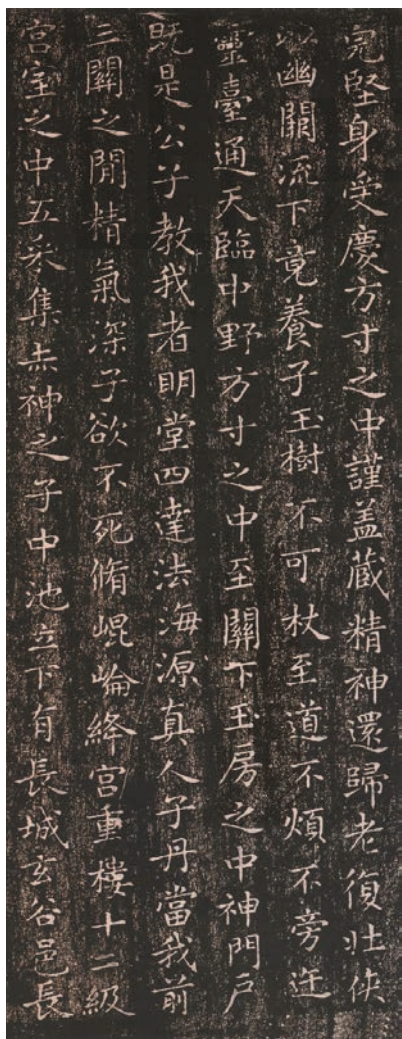 完堅身受慶方寸之中謹盖藏精神還歸老復壯俠
以幽關流下竟養子玉樹不可杖至道不煩不旁迕
靈臺通天臨中野方寸之中至關下玉房之中神門戶
既是公子教我者明堂四達法海源真人子丹當我前
三關之間精氣深子欲不死脩崐崘絳宮重樓十二級
宮室之中五采集赤神之子中池立下有長城玄谷邑長